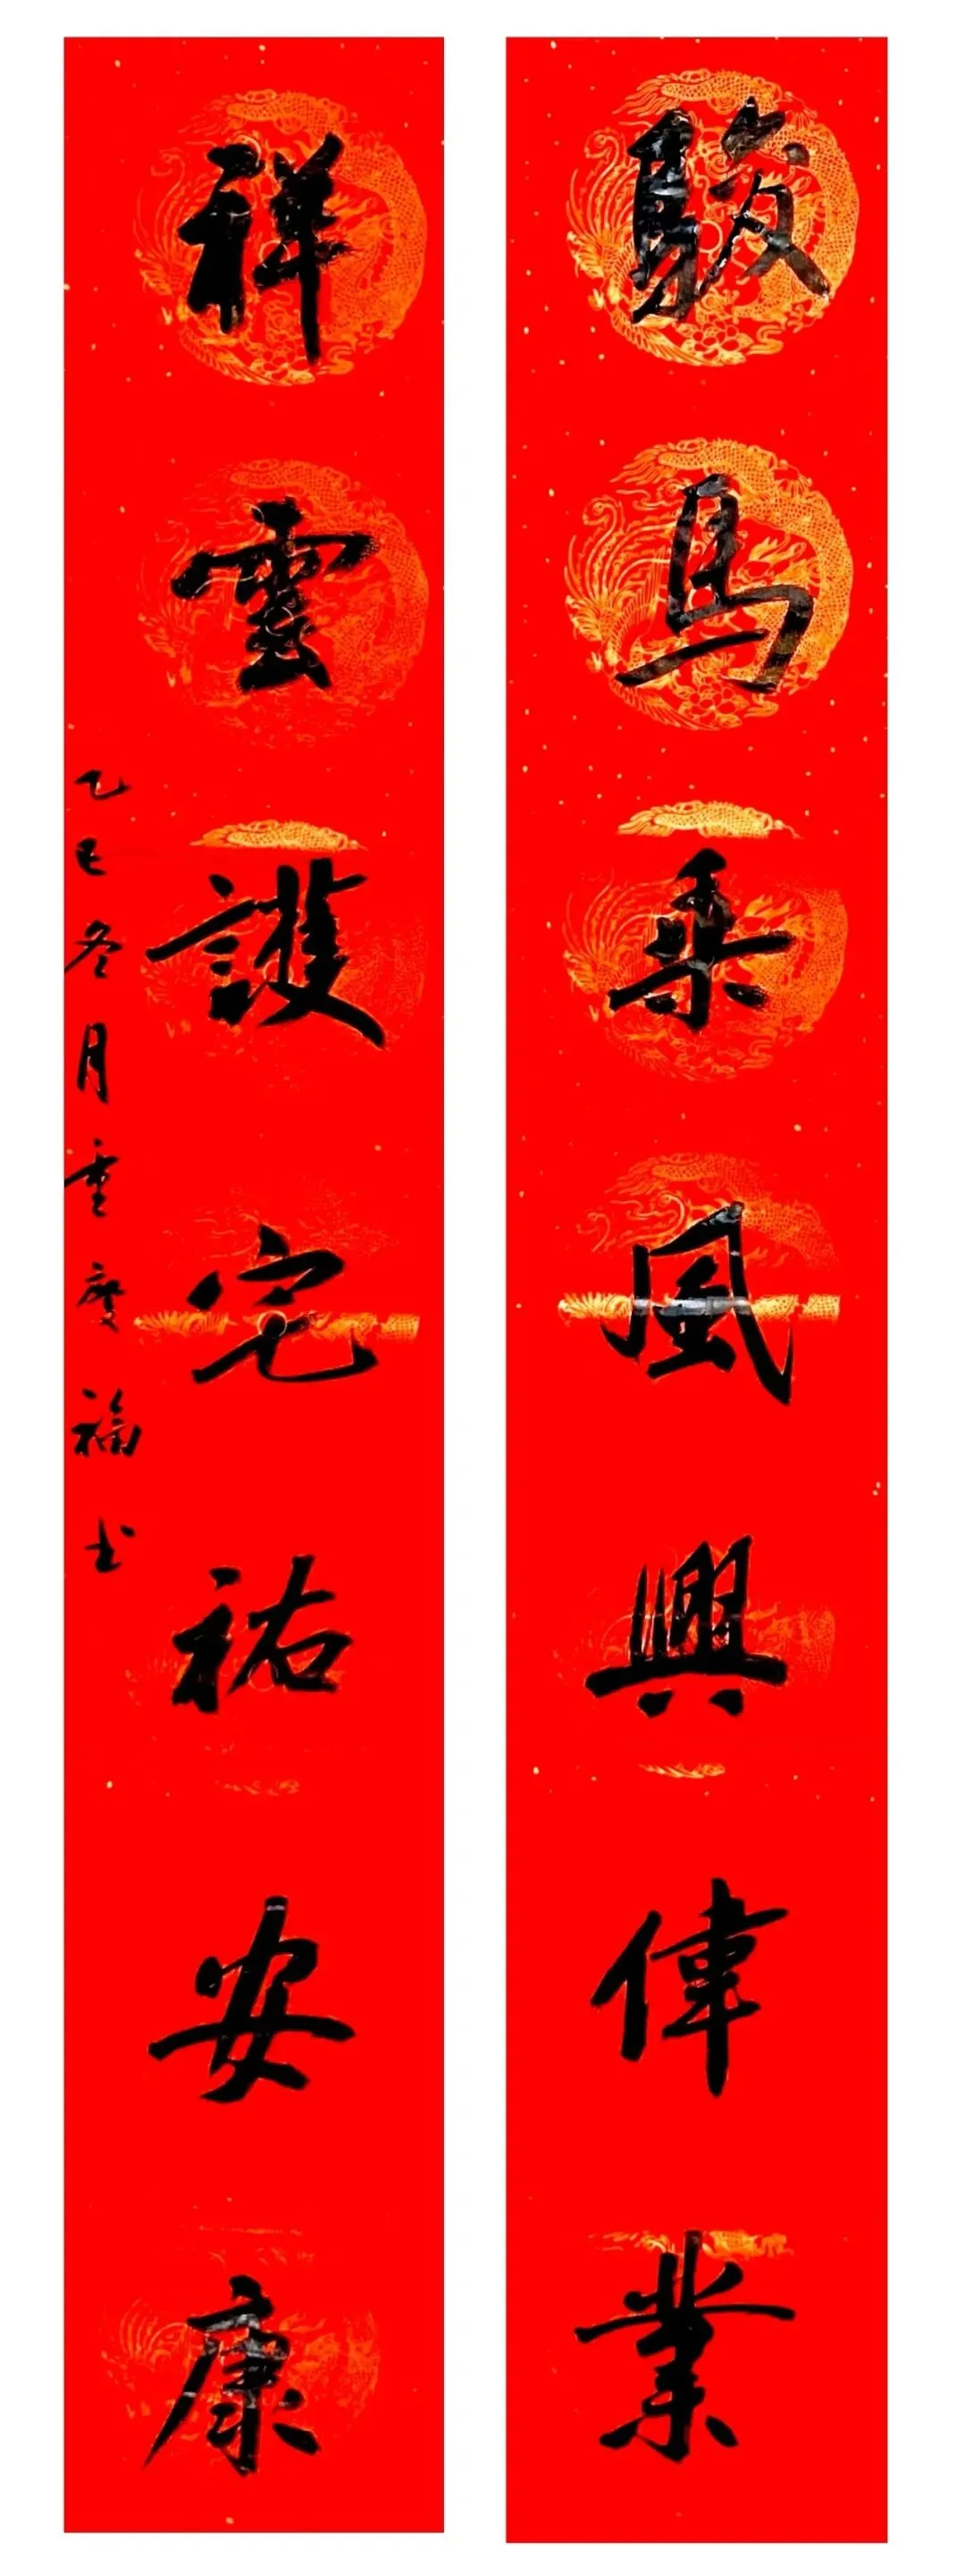 駿馬乘風興偉業
祥雲護宅祐安康
乙巳冬月重慶福書